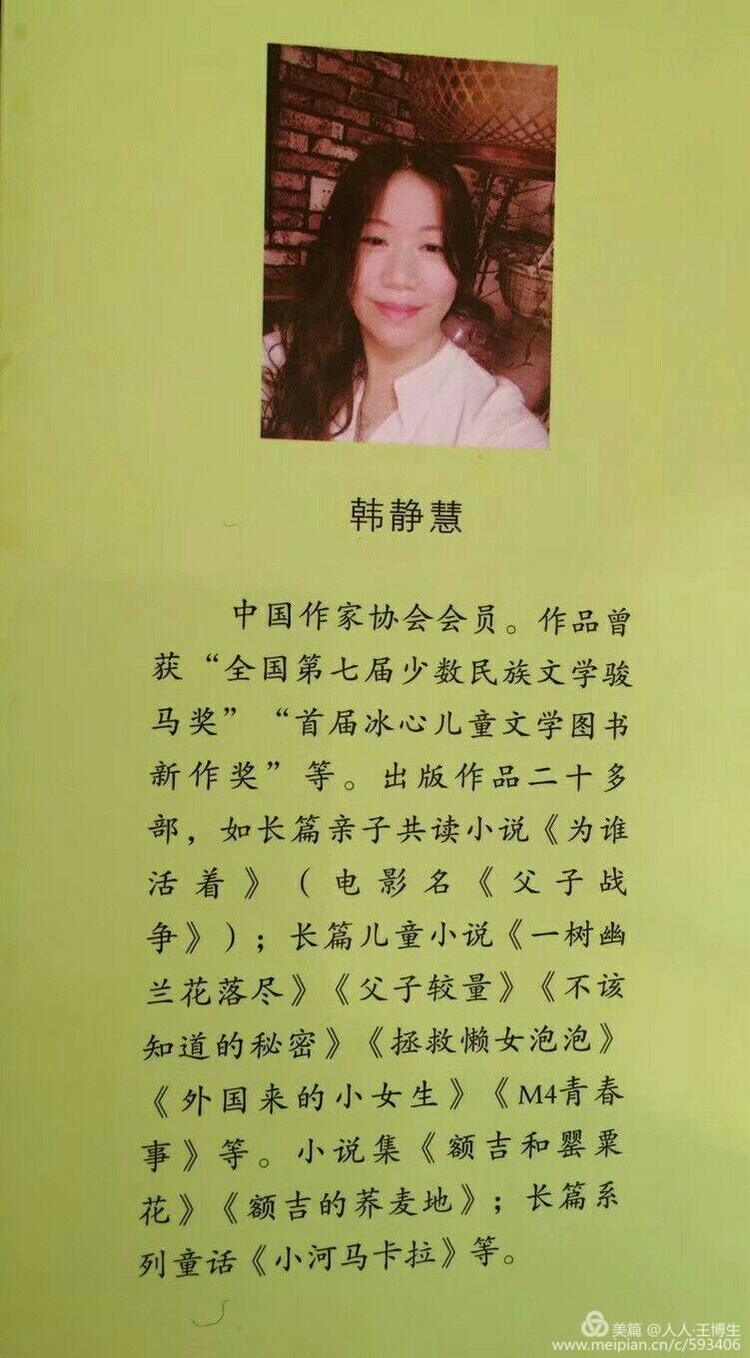 韩静慧
中国作家协会会员。作品曾
获“全国第七届少数民族文学骏
马奖”“首届冰心儿童文学图书
新作奖”等。出版作品二十多
部，如长篇亲子共读小说《为谁
活着》（电影名《父子战
争》）；长篇儿童小说《一树幽
兰花落尽》《父子较量》《不该
知道的秘密》《拯救懒女泡泡》
《外国来的小女生》《M4青春
事》等。小说集《额吉和罂粟
花》《额吉的荞麦地》；长篇系
列童话《小河马卡拉》等。
美篇 @人人·王博生
www.meipian.cn/c/593406